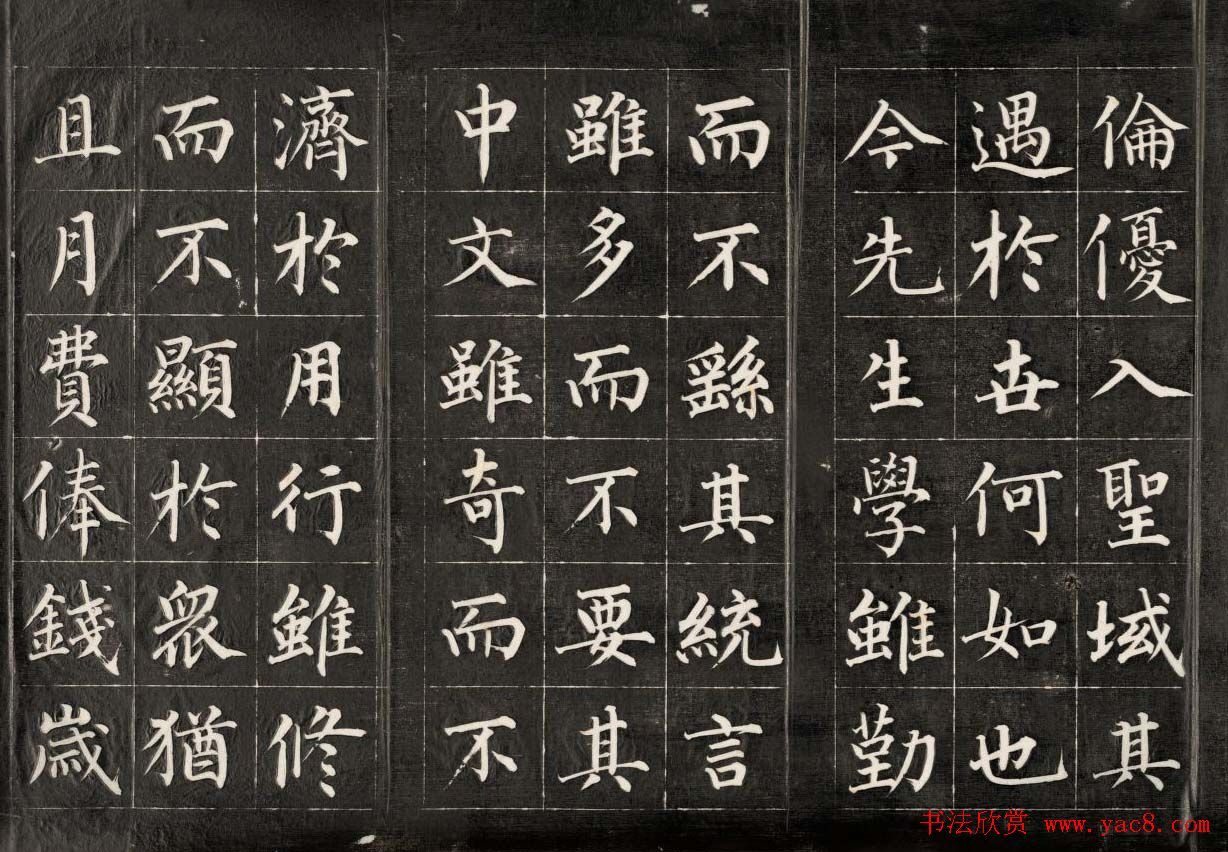 倫優入聖域其
遇於世何如也
今先生學雖勤
而不繇其統言
雖多而不要其
中文雖奇而不
濟於用行雖修
而不顯於衆猶
且月費俸錢歲
书法欣赏 www.yac8.com